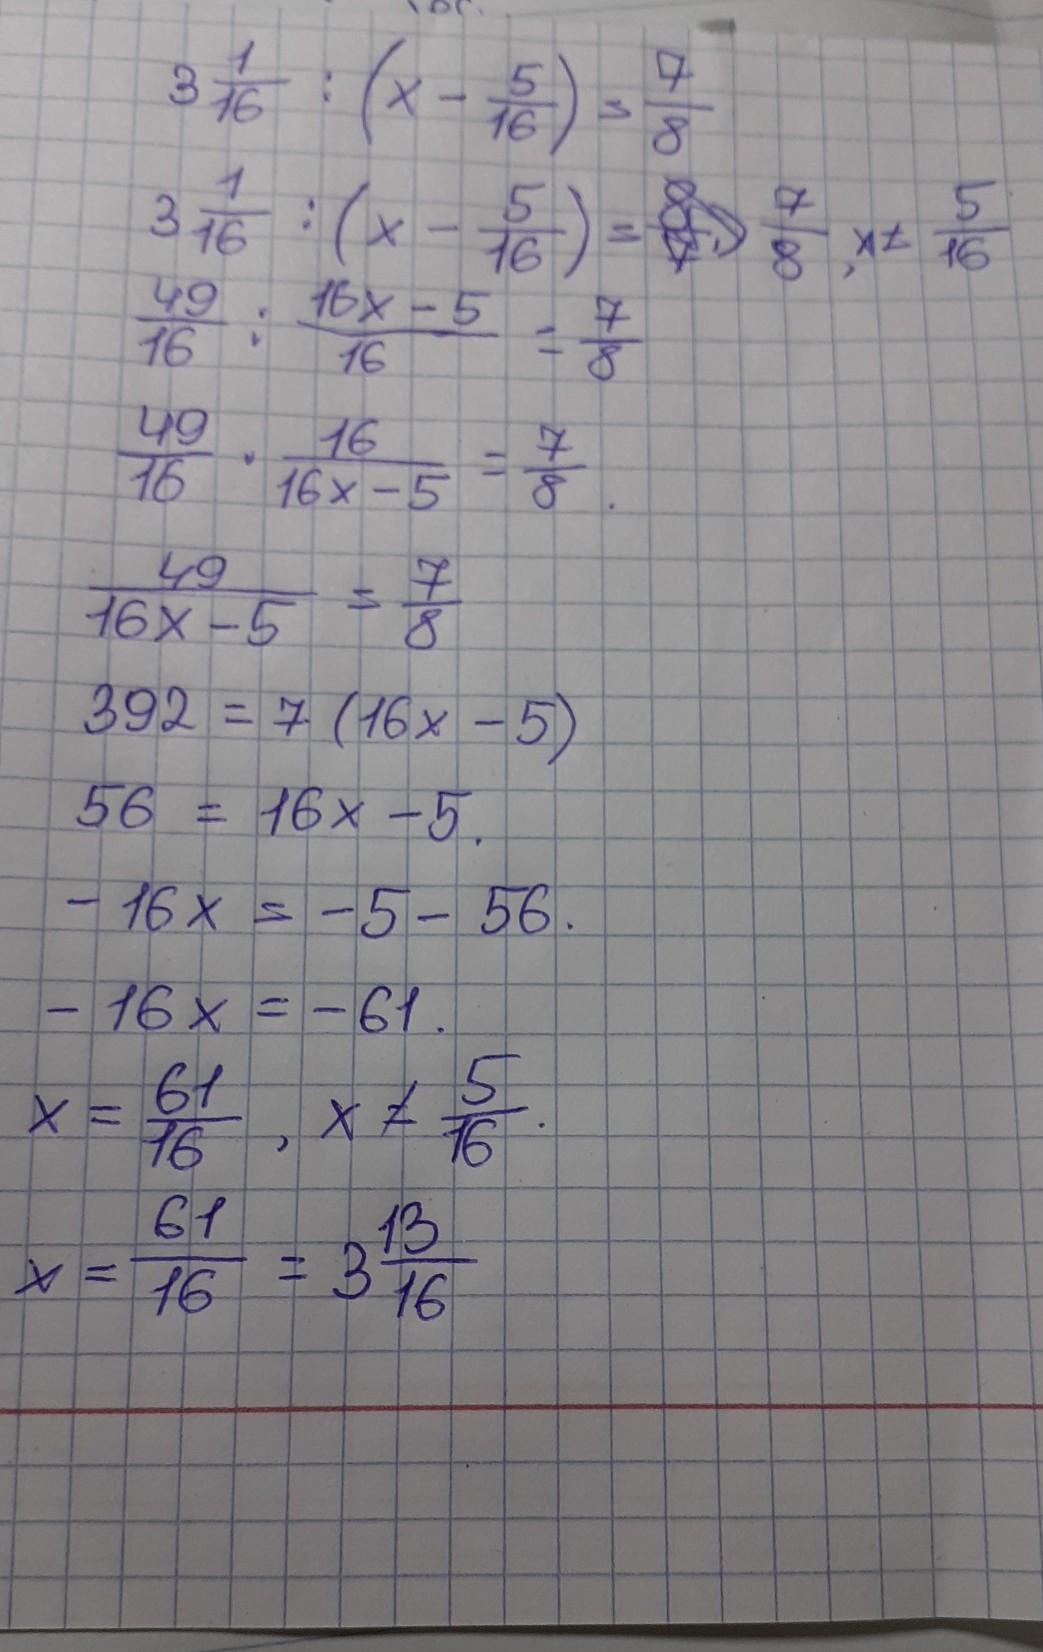 3 1/16 : (x - 5/16) = 7/8
3 1/16 : (x - 5/16) = 7/8, x ≠ 5/16
49/16 : (16x - 5)/16 = 7/8
49/16 · 16/(16x - 5) = 7/8.
49/(16x - 5) = 7/8
392 = 7 (16x - 5)
56 = 16x - 5.
- 16x = -5 - 56.
- 16x = -61.
x = 61/16, x ≠ 5/16.
x = 61/16 = 3 13/16